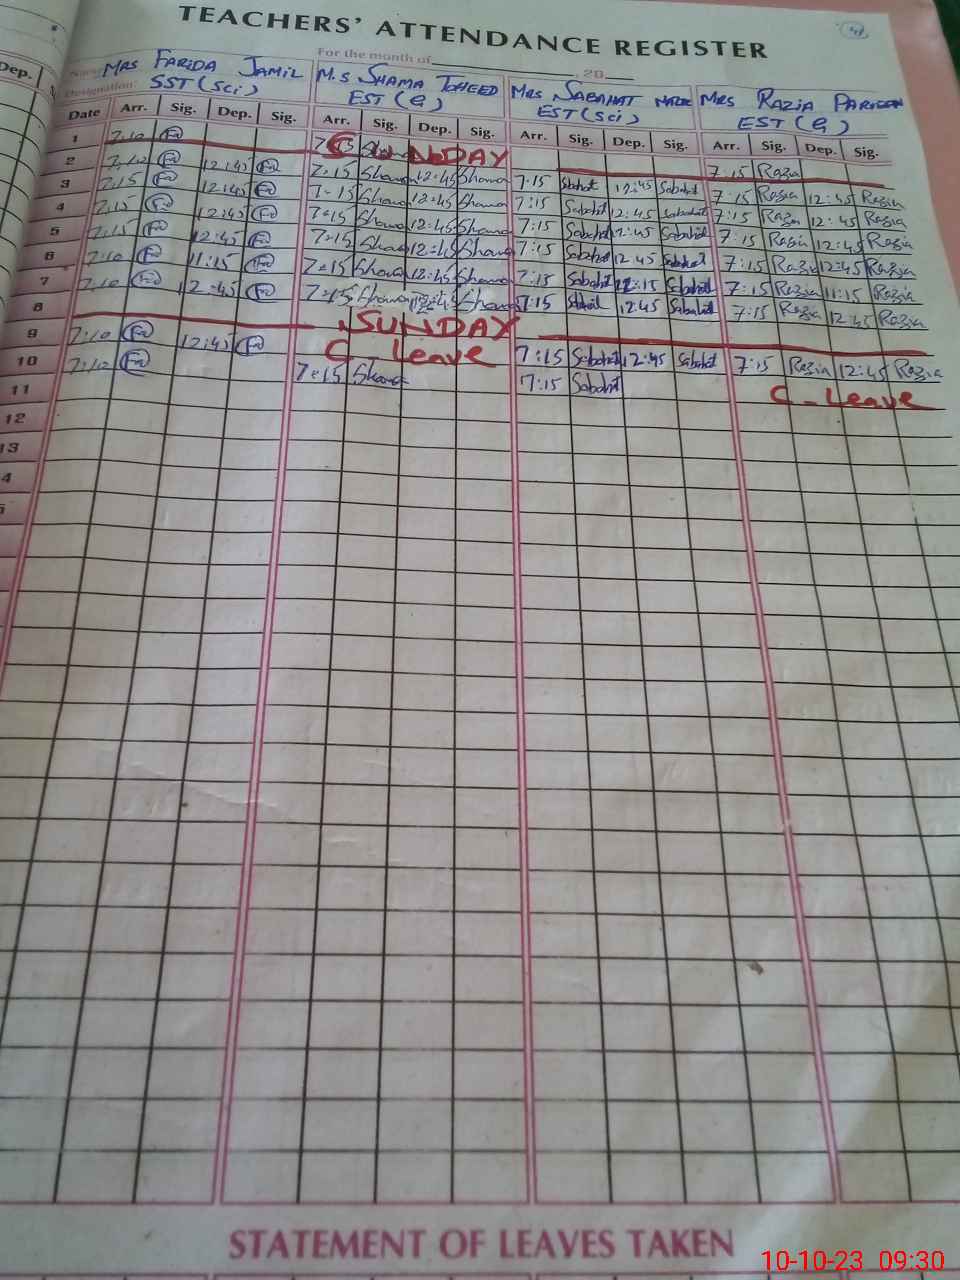 TEACHERS' ATTENDANCE REGISTER
For the month of 20
Name MRS FARIDA JAMIL M.S SHAMA TOHEED MRS SABAHAT MRS RAZIA PARVEEN
Designation SST (Sci) EST (G) EST (Sci) EST (G)
Date Arr. Sig. Dep. Sig. Arr. Sig. Dep. Sig. Arr. Sig. Dep. Sig. Arr. Sig. Dep. Sig.
1 7:10 SUNDAY 7:15 Razia
2 7:10 12:45 7:15 Shama 12:45 Shama 7:15 Sabahat 12:45 Sabahat 7:15 Razia 12:45 Razia
3 7:15 12:45 7:15 Shama 12:45 Shama 7:15 Sabahat 12:45 Sabahat 7:15 Razia 12:45 Razia
4 7:15 12:45 7:15 Shama 12:45 Shama 7:15 Sabahat 12:45 Sabahat 7:15 Razia 12:45 Razia
5 7:15 12:45 7:15 Shama 12:45 Shama 7:15 Sabahat 12:45 Sabahat 7:15 Razia 12:45 Razia
6 7:10 11:15 7:15 Shama 12:45 Shama 7:15 Sabahat 12:15 Sabahat 7:15 Razia 11:15 Razia
7 7:10 12:45 7:15 Shama 12:45 Shama 7:15 Sabahat 12:45 Sabahat 7:15 Razia 12:45 Razia
8 SUNDAY
9 7:10 12:45 C Leave 7:15 Sabahat 12:45 Sabahat 7:15 Razia 12:45 Razia
10 7:10 7:15 Shama 7:15 Sabahat C-Leave
11
12
13
4
5
STATEMENT OF LEAVES TAKEN
10-10-23 09:30